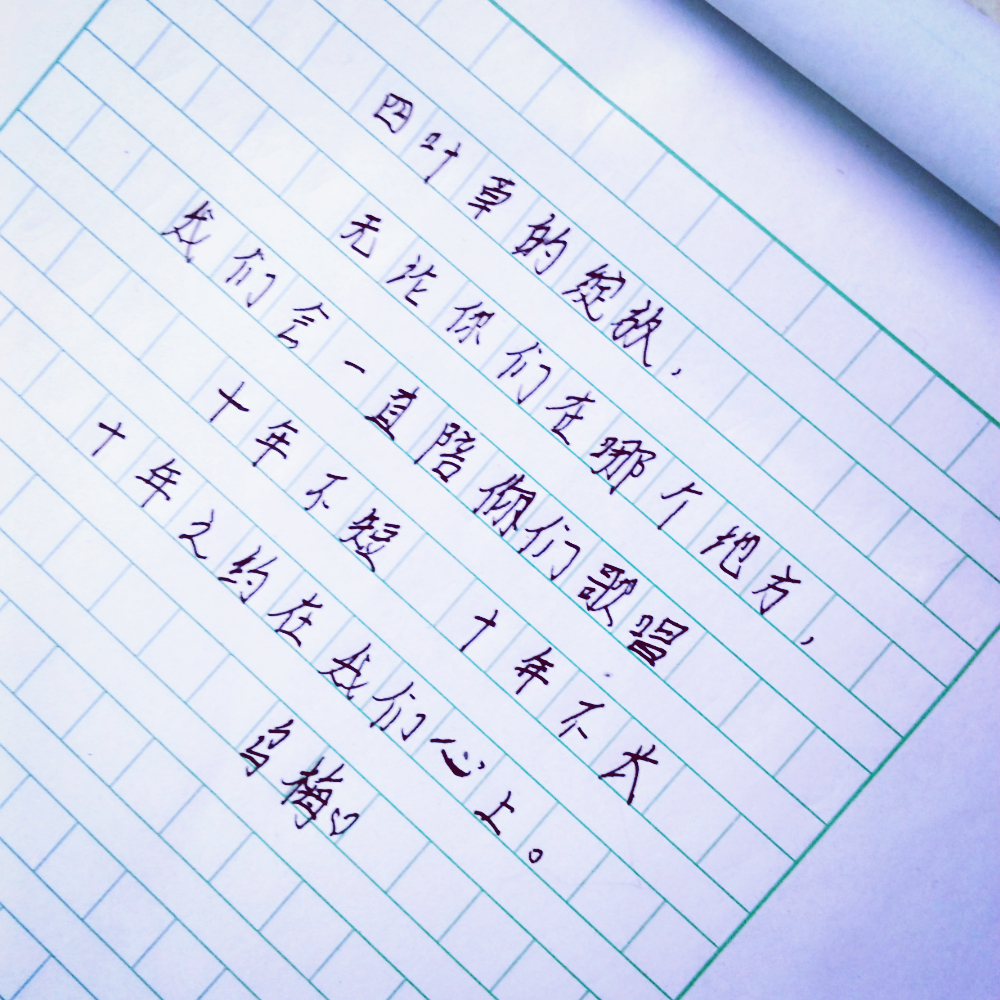 四叶草的绽放,
无论你们在哪个地方,
我们会一直陪你们歌唱
十年不短 十年不长
十年之约在我们心上。
乌梅♡